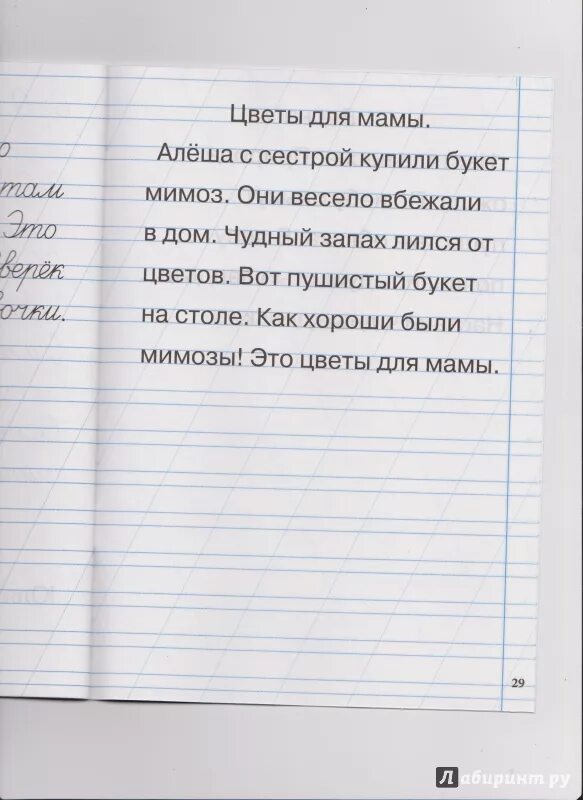 Цветы для мамы.
Алёша с сестрой купили букет
мимоз. Они весело вбежали
в дом. Чудный запах лился от
цветов. Вот пушистый букет
на столе. Как хороши были
мимозы! Это цветы для мамы.
там
Это
верёк
очки.
29
Лабиринт.ру